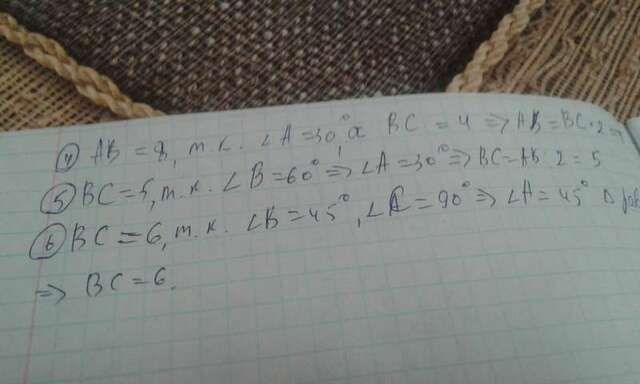 ④ AB = 8, т.к. ∠A = 30°, а BC = 4 ⇒ AB = BC·2 =
⑤ BC = 5, т.к. ∠B = 60° ⇒ ∠A = 30° ⇒ BC = AB : 2 = 5
⑥ BC = 6, т.к. ∠B = 45°, ∠C = 90° ⇒ ∠A = 45° Δ
⇒ BC = 6.